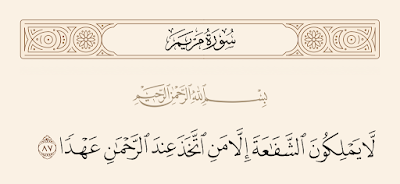 سُورَةُ مَرْيَمَ
بِسْمِ اللَّهِ الرَّحْمَٰنِ الرَّحِيمِ
لَّا يَمْلِكُونَ الشَّفَاعَةَ إِلَّا مَنِ اتَّخَذَ عِندَ الرَّحْمَٰنِ عَهْدًا ٨٧